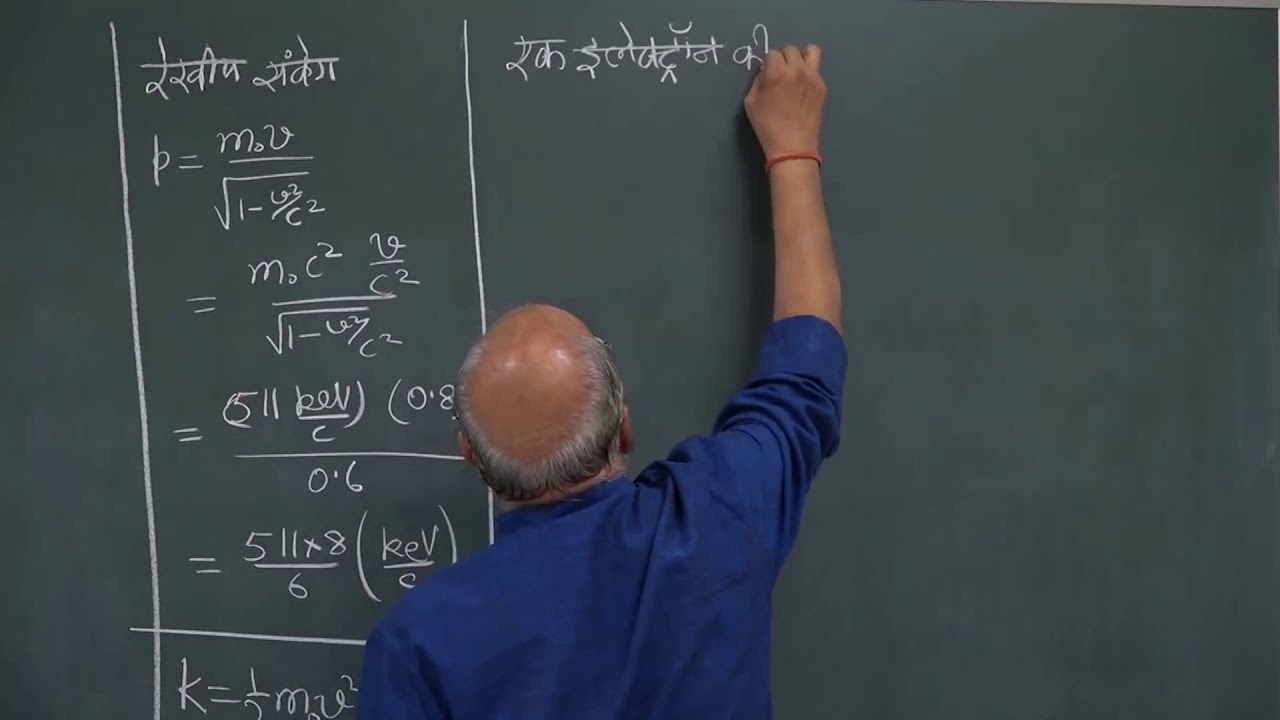 रेखीय संवेग
p = m₀v / √(1-v²/c²)
= m₀c² v/c² / √(1-v²/c²)
= (511 keV/c) (0.8 / 0.6
= 511×8 / 6 (keV/c)
K = 1/2 m₀v²
एक इलेक्ट्रॉन की